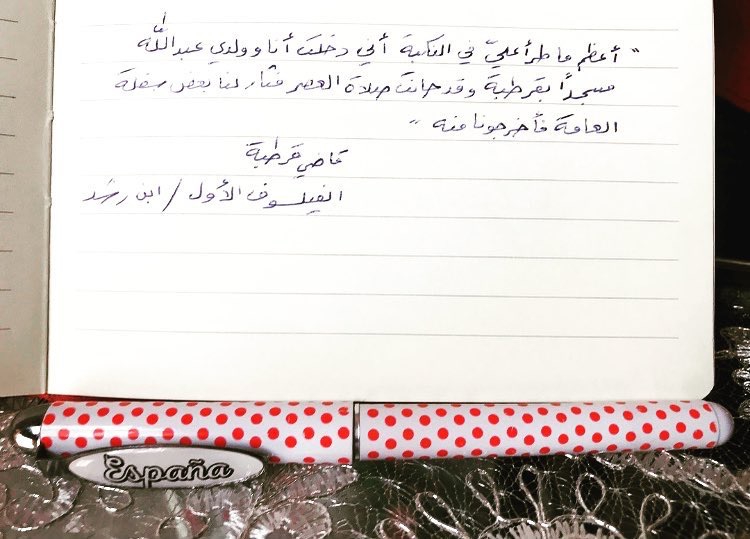 " أعظم ما طرأ عليّ في النكبة أني دخلت أنا وولدي عبدالله
مسجداً بقرطبة وقد حانت صلاة العصر فثار لنا بعض سفلة
العامة فأخرجونا منه "
قاضي قرطبة
الفيلسوف الأول / ابن رشد
España